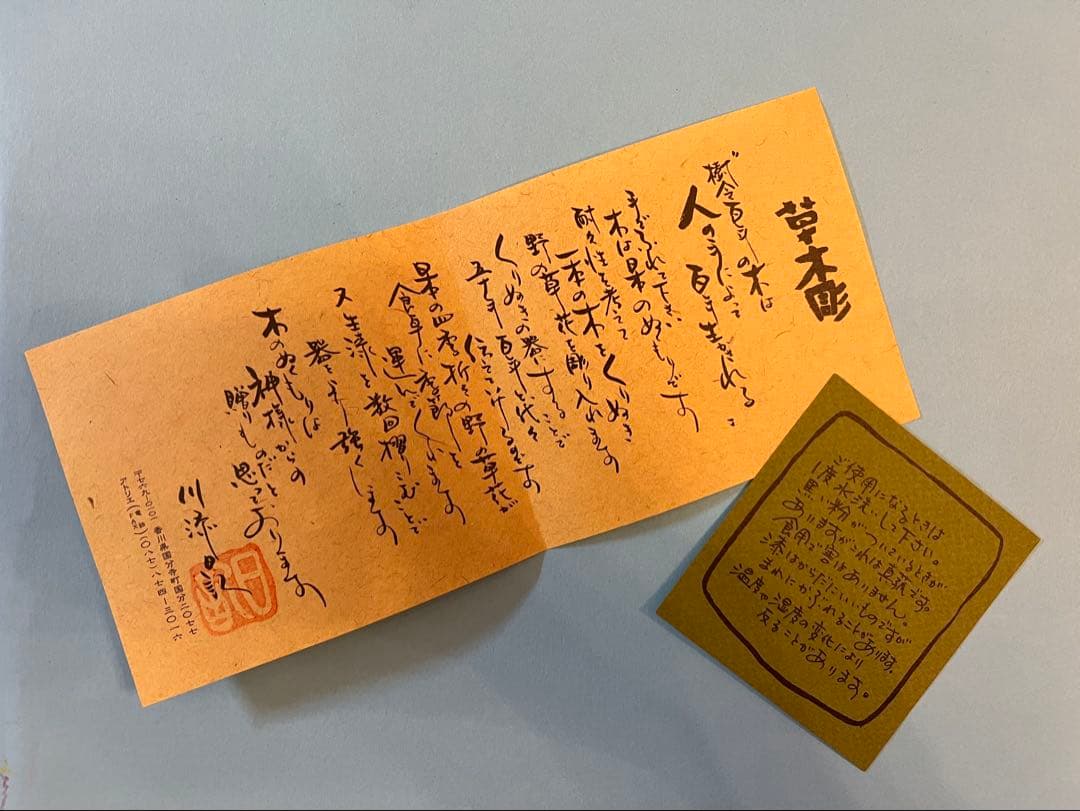 草木彫
樹令百年の木は
人の手によって
百年生かされる
手がふれて下さい
木は日本のぬくもりです
耐久性を考えて
一本の木をくりぬき
野の草花を彫り入れます
くりぬきの器にすることで
五十年百年と代々
伝えていけるはずです
日本の四季折々の野の草花が
食卓に季節を
運んでくれます
又生漆を数回摺りこむことで
器をより強くします
木のぬくもりは
神様からの
贈りものだと
思っております
川添日記
香川県国分寺町国分二〇七七
(〇八七)八七四-三〇一六
ご使用になるときは
1度水洗いして下さい。
黒い粉がついているときが
ありますがこれは真菰です。
食用で害はありません。
漆はからだにいいものですが
まれにかぶれることがあります。
温度や湿度の変化により
反ることがあります。